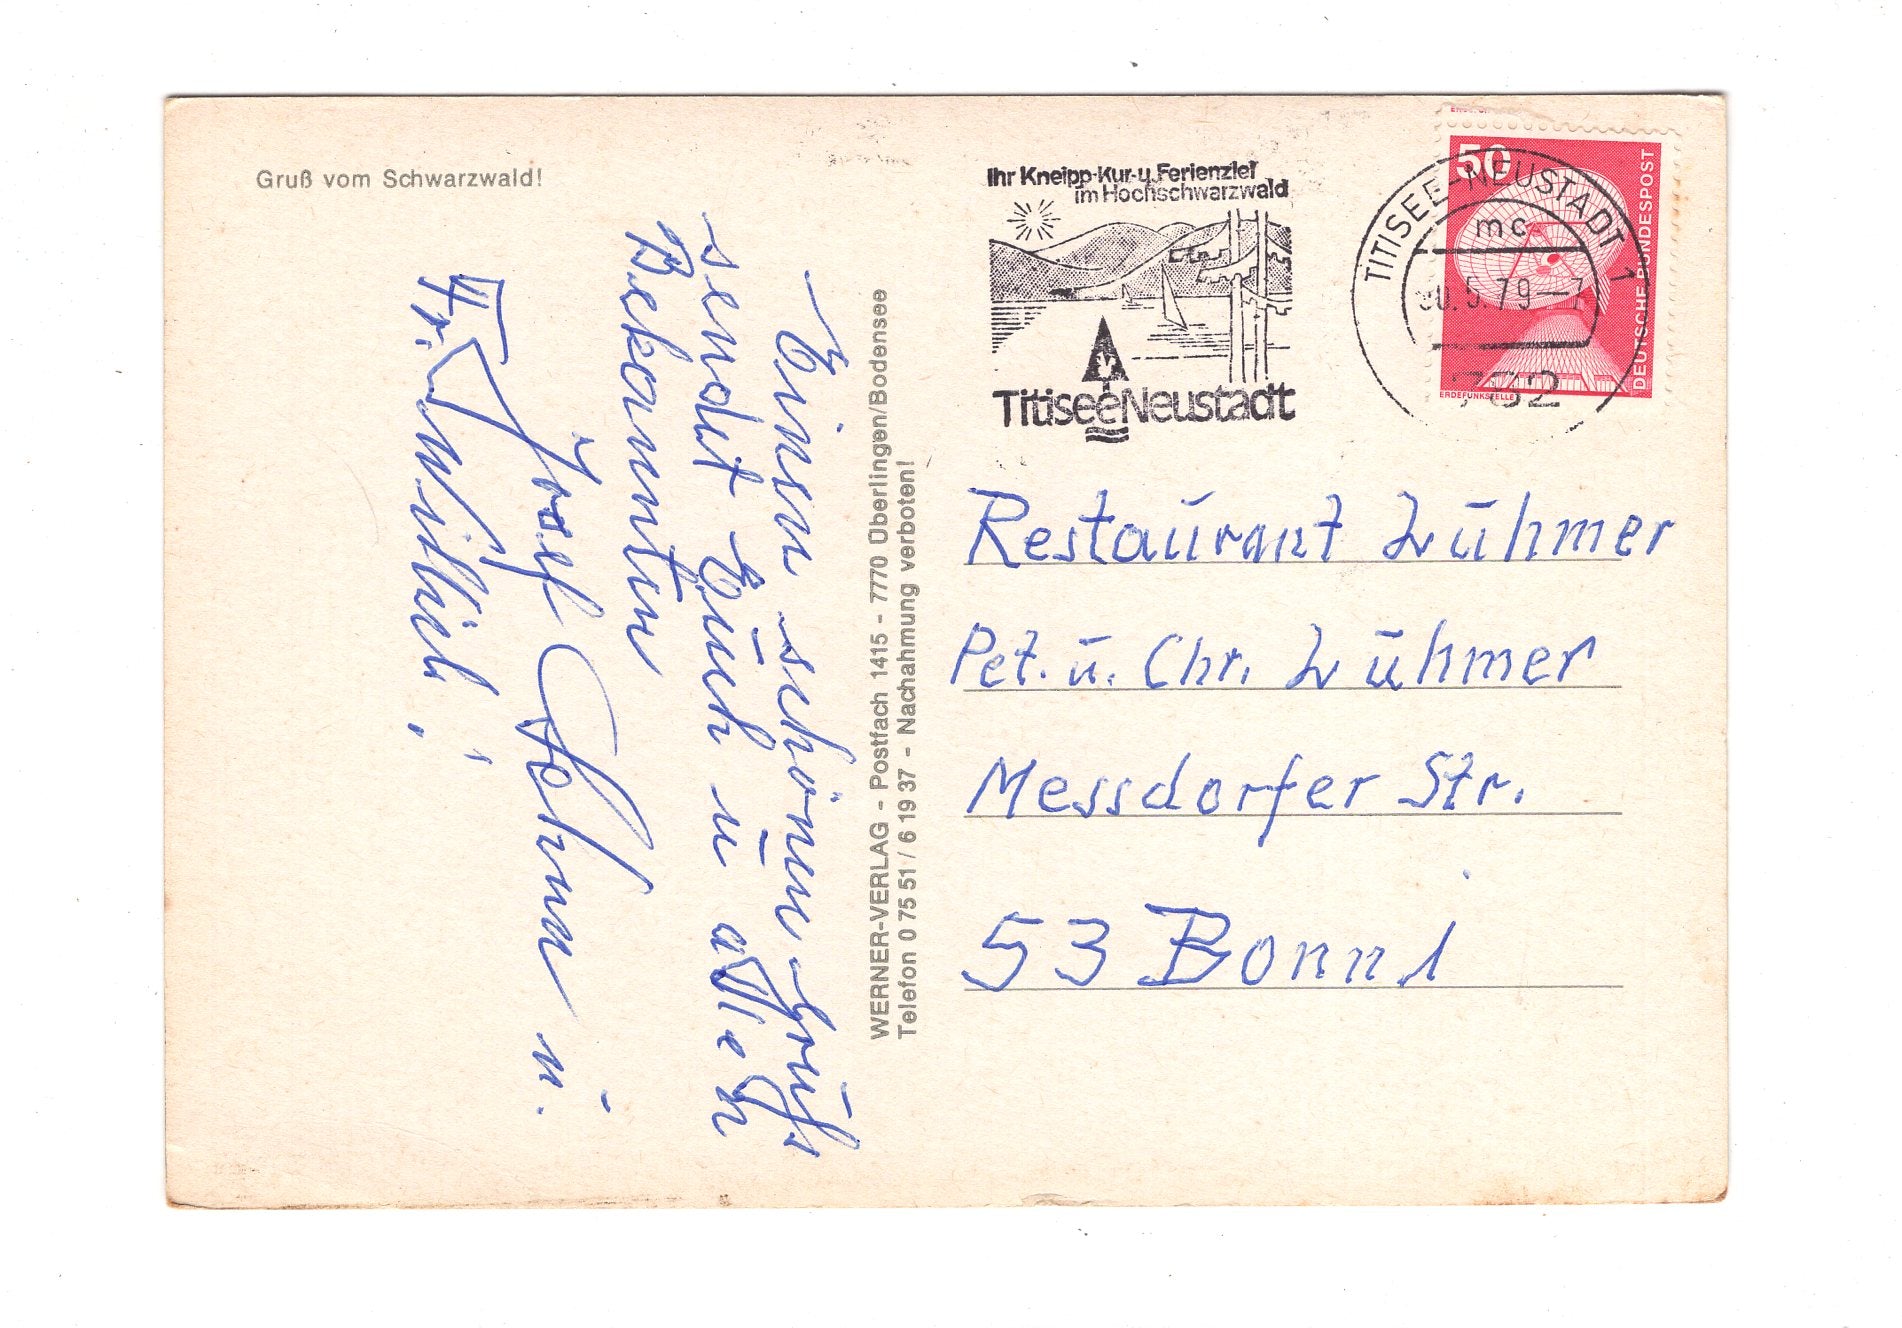 Gruß vom Schwarzwald!
Einen schönen Gruß
sendet Euch u allen
Bekannten
Josef u.
Fr. 
WERNER-VERLAG - Postfach 1415 - 7770 Überlingen/Bodensee
Telefon 0 75 51 / 6 19 37 - Nachahmung verboten!
Ihr Kneipp-Kur-u.Ferienziel
im Hochschwarzwald
Titisee Neustadt
TITISEE-NEUSTADT 1
mc
.5.79-7
782
50
DEUTSCHE BUNDESPOST
ERDEFUNKSTELLE
Restaurant Lühmer
Pet. u. Chr. Lühmer
Messdorfer Str.
53 Bonn 1